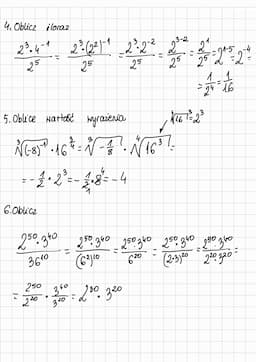 4. Oblicz iloraz
2³·4⁻¹/2⁵ = 2³·(2²)⁻¹/2⁵ = 2³·2⁻²/2⁵ = 2³⁻²/2⁵ = 2¹/2⁵ = 2¹⁻⁵ = 2⁻⁴
= 1/2⁴ = 1/16
5. Oblicz wartość wyrażenia
∜16³ = 2³
∛(-8)⁻¹ · 16^(3/4) = ∛(-1/8) · ∜16³ =
= -1/2 · 2³ = -1/2 · 8 = -4
6. Oblicz
2⁵⁰·3⁴⁰/36¹⁰ = 2⁵⁰·3⁴⁰/(6²)¹⁰ = 2⁵⁰·3⁴⁰/6²⁰ = 2⁵⁰·3⁴⁰/(2·3)²⁰ = 2⁵⁰·3⁴⁰/2²⁰·3²⁰ =
= 2⁵⁰/2²⁰ · 3⁴⁰/3²⁰ = 2³⁰ · 3²⁰